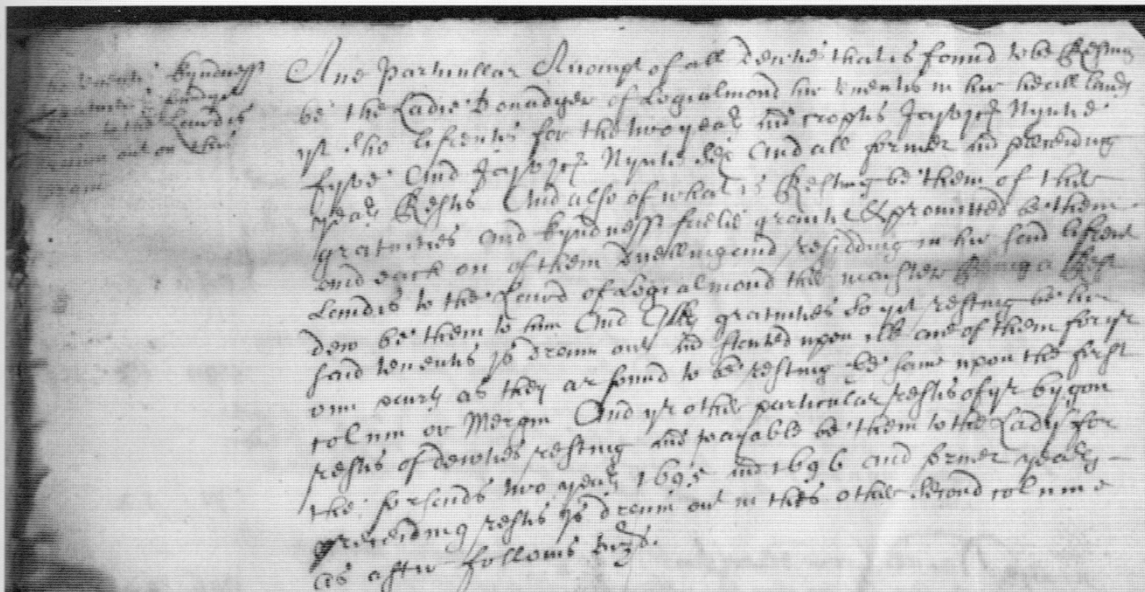 the tenents kyndness
gratuities
to the Lairdis
drawin out on this
Ane Particullar Accompt of all dewties that is found to be Resting
be the Ladie Dowadger of Logialmond hir tenents in hir heall lands
yt sho lifrents for the two years and cropts Jajvjcj Nyntie
fyve And Jajvjcj Nyntie sex And all former and preceiding
years Restis And also of what is Resting be them of ther
gratuities and kyndness frielie grantit & promitted be them
and each on of them duelling and residding in hir said lifrent
Landis to the Laird of Logialmond ther maister
dew be them to him And gratuities so yit resting be hir
said tenents is drawin out and stented upon ilk ane of them for yr
own pairts as they ar found to be resting the same upon the first
colum or Mergin And yr other particular restis of yr bygon
restis of dewties resting and payable be them to the Lady for
the forsends two years 1695 and 1696 and former years
preceiding restis is drawin out in this other second columne
as after follows vizt.